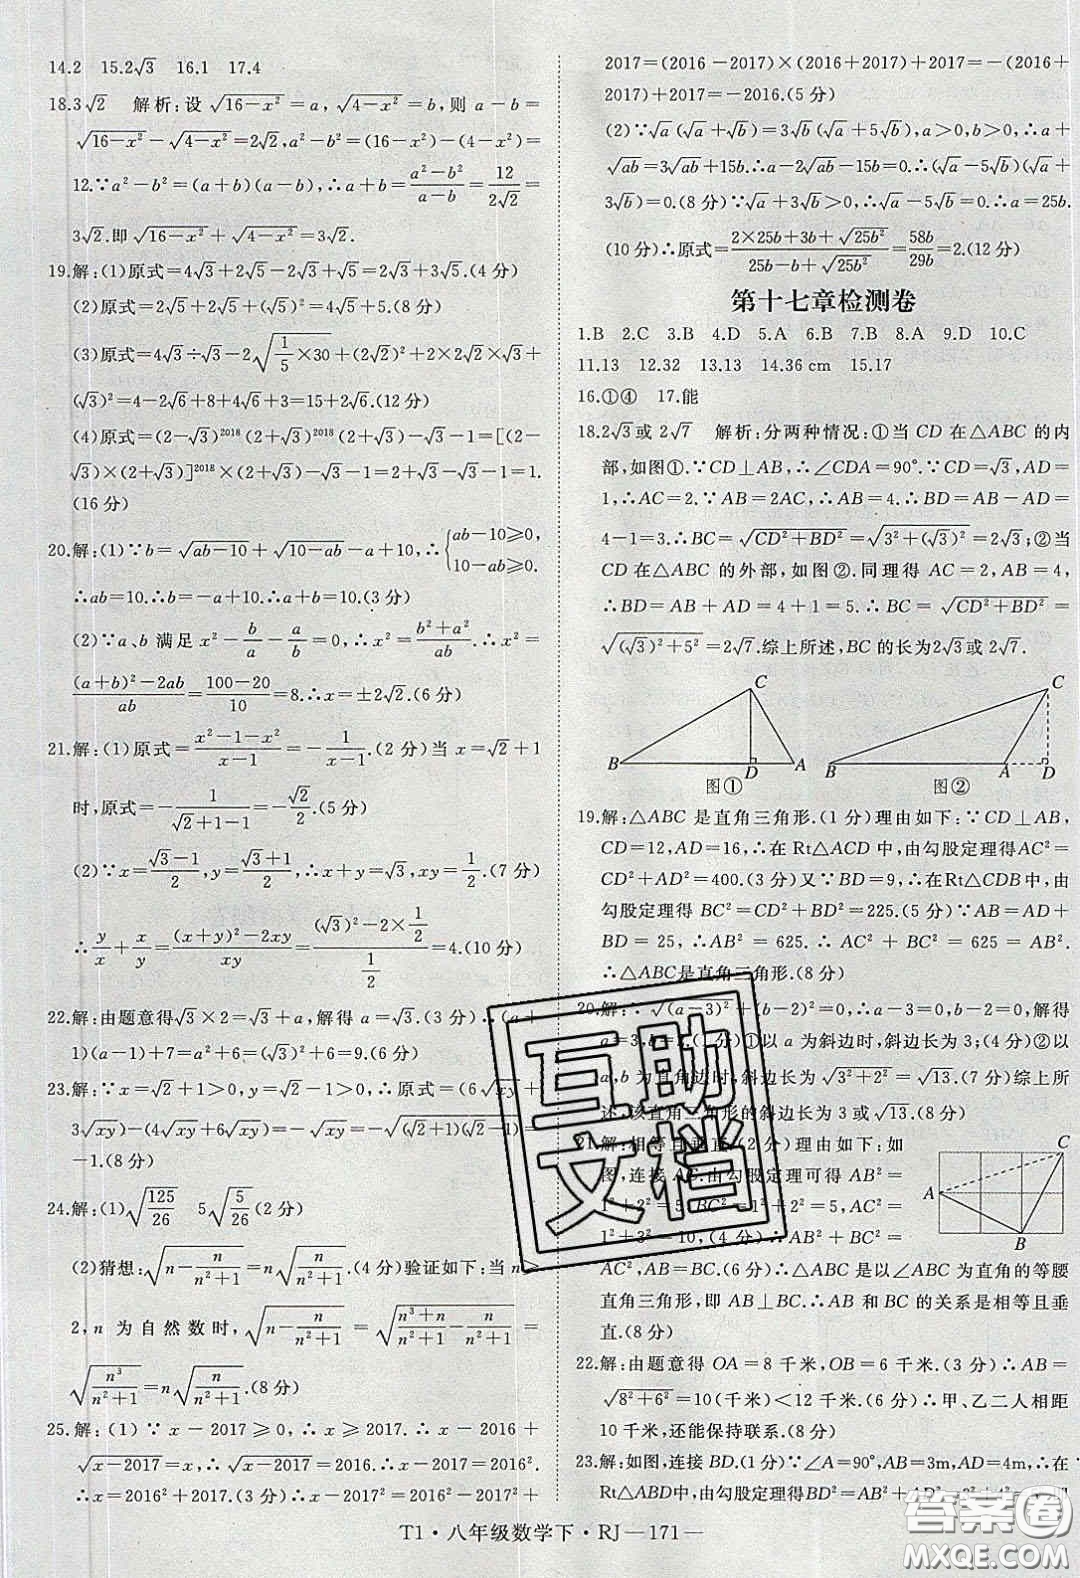 14.2 15.2√3 16.1 17.4
18.3√2 解析:设√(16-x²)=a,√(4-x²)=b,则a-b=
√(16-x²)-√(4-x²)=2√2,a²-b²=(16-x²)-(4-x²)=
12.∵a²-b²=(a+b)(a-b),∴a+b=(a²-b²)/(a-b)=12/(2√2)=
3√2.即√(16-x²)+√(4-x²)=3√2.
19.解:(1)原式=4√3+2√5-2√3+√5=2√3+3√5.(4分)
(2)原式=2√5+2√5+(√5)²=4√5+5.(8分)
(3)原式=4√3÷√3-2√(1/5×30)+(2√2)²+2×2√2×√3+
(√3)²=4-2√6+8+4√6+3=15+2√6.(12分)
(4)原式=(2-√3)²⁰¹⁸(2+√3)²⁰¹⁸(2+√3)-√3-1=[(2-
√3)×(2+√3)]²⁰¹⁸×(2+√3)-√3-1=2+√3-√3-1=1.
(16分)
20.解:(1)∵b=√(ab-10)+√(10-ab)-a+10,∴{ab-10≥0, 10-ab≥0.
∴ab=10.∴b=-a+10,∴a+b=10.(3分)
(2)∵a、b满足x²-b/a-a/b=0,∴x²=(b²+a²)/ab.∴x²=
((a+b)²-2ab)/ab=(100-20)/10=8.∴x=±2√2.(6分)
21.解:(1)原式=(x²-1-x²)/(x-1)=-1/(x-1).(2分)当x=√2+1
时,原式=-1/(√2+1-1)=-√2/2.(5分)
(2)∵x=(√3-1)/2,y=(√3+1)/2,∴x+y=√3,xy=1/2.(7分)
∴y/x+x/y=((x+y)²-2xy)/xy=((√3)²-2×1/2)/(1/2)=4.(10分)
22.解:由题意得√3×2=√3+a,解得a=√3.(3分)∴(a+
1)(a-1)+7=a²+6=(√3)²+6=9.(6分)
23.解:∵x=√2+1>0,y=√2-1>0,∴原式=(6√xy+
3√xy)-(4√xy+6√xy)=-√xy=-√((√2+1)(√2-1))=
-1.(8分)
24.解:(1)√(125/26) 5√(5/26)(2分)
(2)猜想:√(n-n/(n²+1))=n√(n/(n²+1)).(4分)验证如下:当n≥
2,n为自然数时,√(n-n/(n²+1))=√((n³+n)/(n²+1)-n/(n²+1))=
√(n³/(n²+1))=n√(n/(n²+1)).(8分)
25.解:(1)∵x-2017≥0,∴x≥2017,∴x-2016+
√(x-2017)=x.∴√(x-2017)=2016.∴x-2017=2016².
∴x=2016²+2017.(3分)∴x-2016²=2016²-2016²+
2017=(2016-2017)×(2016+2017)+2017=-(2016+
2017)+2017=-2016.(5分)
(2)∵√a(√a+√b)=3√b(√a+5√b),a>0,b>0,∴a+
√ab=3√ab+15b.∴a-2√ab-15b=0.∴(√a-5√b)(√a+
3√b)=0.(8分)∵√a+3√b>0,∴√a-5√b=0,∴a=25b.
(10分)∴原式=(2×25b+3b+√(25b²))/(25b-b+√(25b²))=58b/29b=2.(12分)
第十七章检测卷
1.B 2.C 3.B 4.D 5.A 6.B 7.B 8.A 9.D 10.C
11.13 12.32 13.13 14.36 cm 15.17
16.①④ 17.能
18.2√3或2√7 解析:分两种情况:①当CD在△ABC的内
部,如图①.∵CD⊥AB,∴∠CDA=90°.∵CD=√3,AD=
1,∴AC=2.∵AB=2AC,∴AB=4,∴BD=AB-AD=
4-1=3.∴BC=√(CD²+BD²)=√(3²+(√3)²)=2√3;②当
CD在△ABC的外部,如图②.同理得AC=2,AB=4,
∴BD=AB+AD=4+1=5.∴BC=√(CD²+BD²)=
√((√3)²+5²)=2√7.综上所述,BC的长为2√3或2√7.
C
B D A
图①
C
B A D
图②
19.解:△ABC是直角三角形.(1分)理由如下:∵CD⊥AB,
CD=12,AD=16,∴在Rt△ACD中,由勾股定理得AC²=
CD²+AD²=400.(3分)又∵BD=9,∴在Rt△CDB中,由
勾股定理得BC²=CD²+BD²=225.(5分)∵AB=AD+
BD=25,∴AB²=625.∴AC²+BC²=625=AB²,
∴△ABC是直角三角形.(8分)
20.解:∵√(a-3)²+(b-2)²=0,∴a-3=0,b-2=0,解得
a=3,b=2.(1分)①以a为斜边时,斜边长为3;(4分)②以
a,b为直角边时,斜边长为√(3²+2²)=√13.(7分)综上所
述,该直角三角形的斜边长为3或√13.(8分)
21.解:相等且垂直.(2分)理由如下:如
图,连接AC.由勾股定理可得AB²=
1²+2²=5,BC²=1²+2²=5,AC²=
1²+3²=10,(4分)∴AB²+BC²=
AC²,∴△ABC是以∠ABC为直角的等腰
直角三角形,即AB⊥BC.∴AB和BC的关系是相等且垂
直.(8分)
C
A
B
22.解:由题意得OA=8千米,OB=6千米.(3分)∴AB=
√(8²+6²)=10(千米)<12千米.(6分)∴甲、乙二人相距
10千米,还能保持联系.(8分)
23.解:如图,连接BD.(1分)∵∠A=90°,AB=3m,AD=4m,∴在
Rt△ABD中,由勾股定理得BD²=AB²+AD²
T1·八年级数学下·RJ—171—
互助
文档
答案圈
MXQE.COM